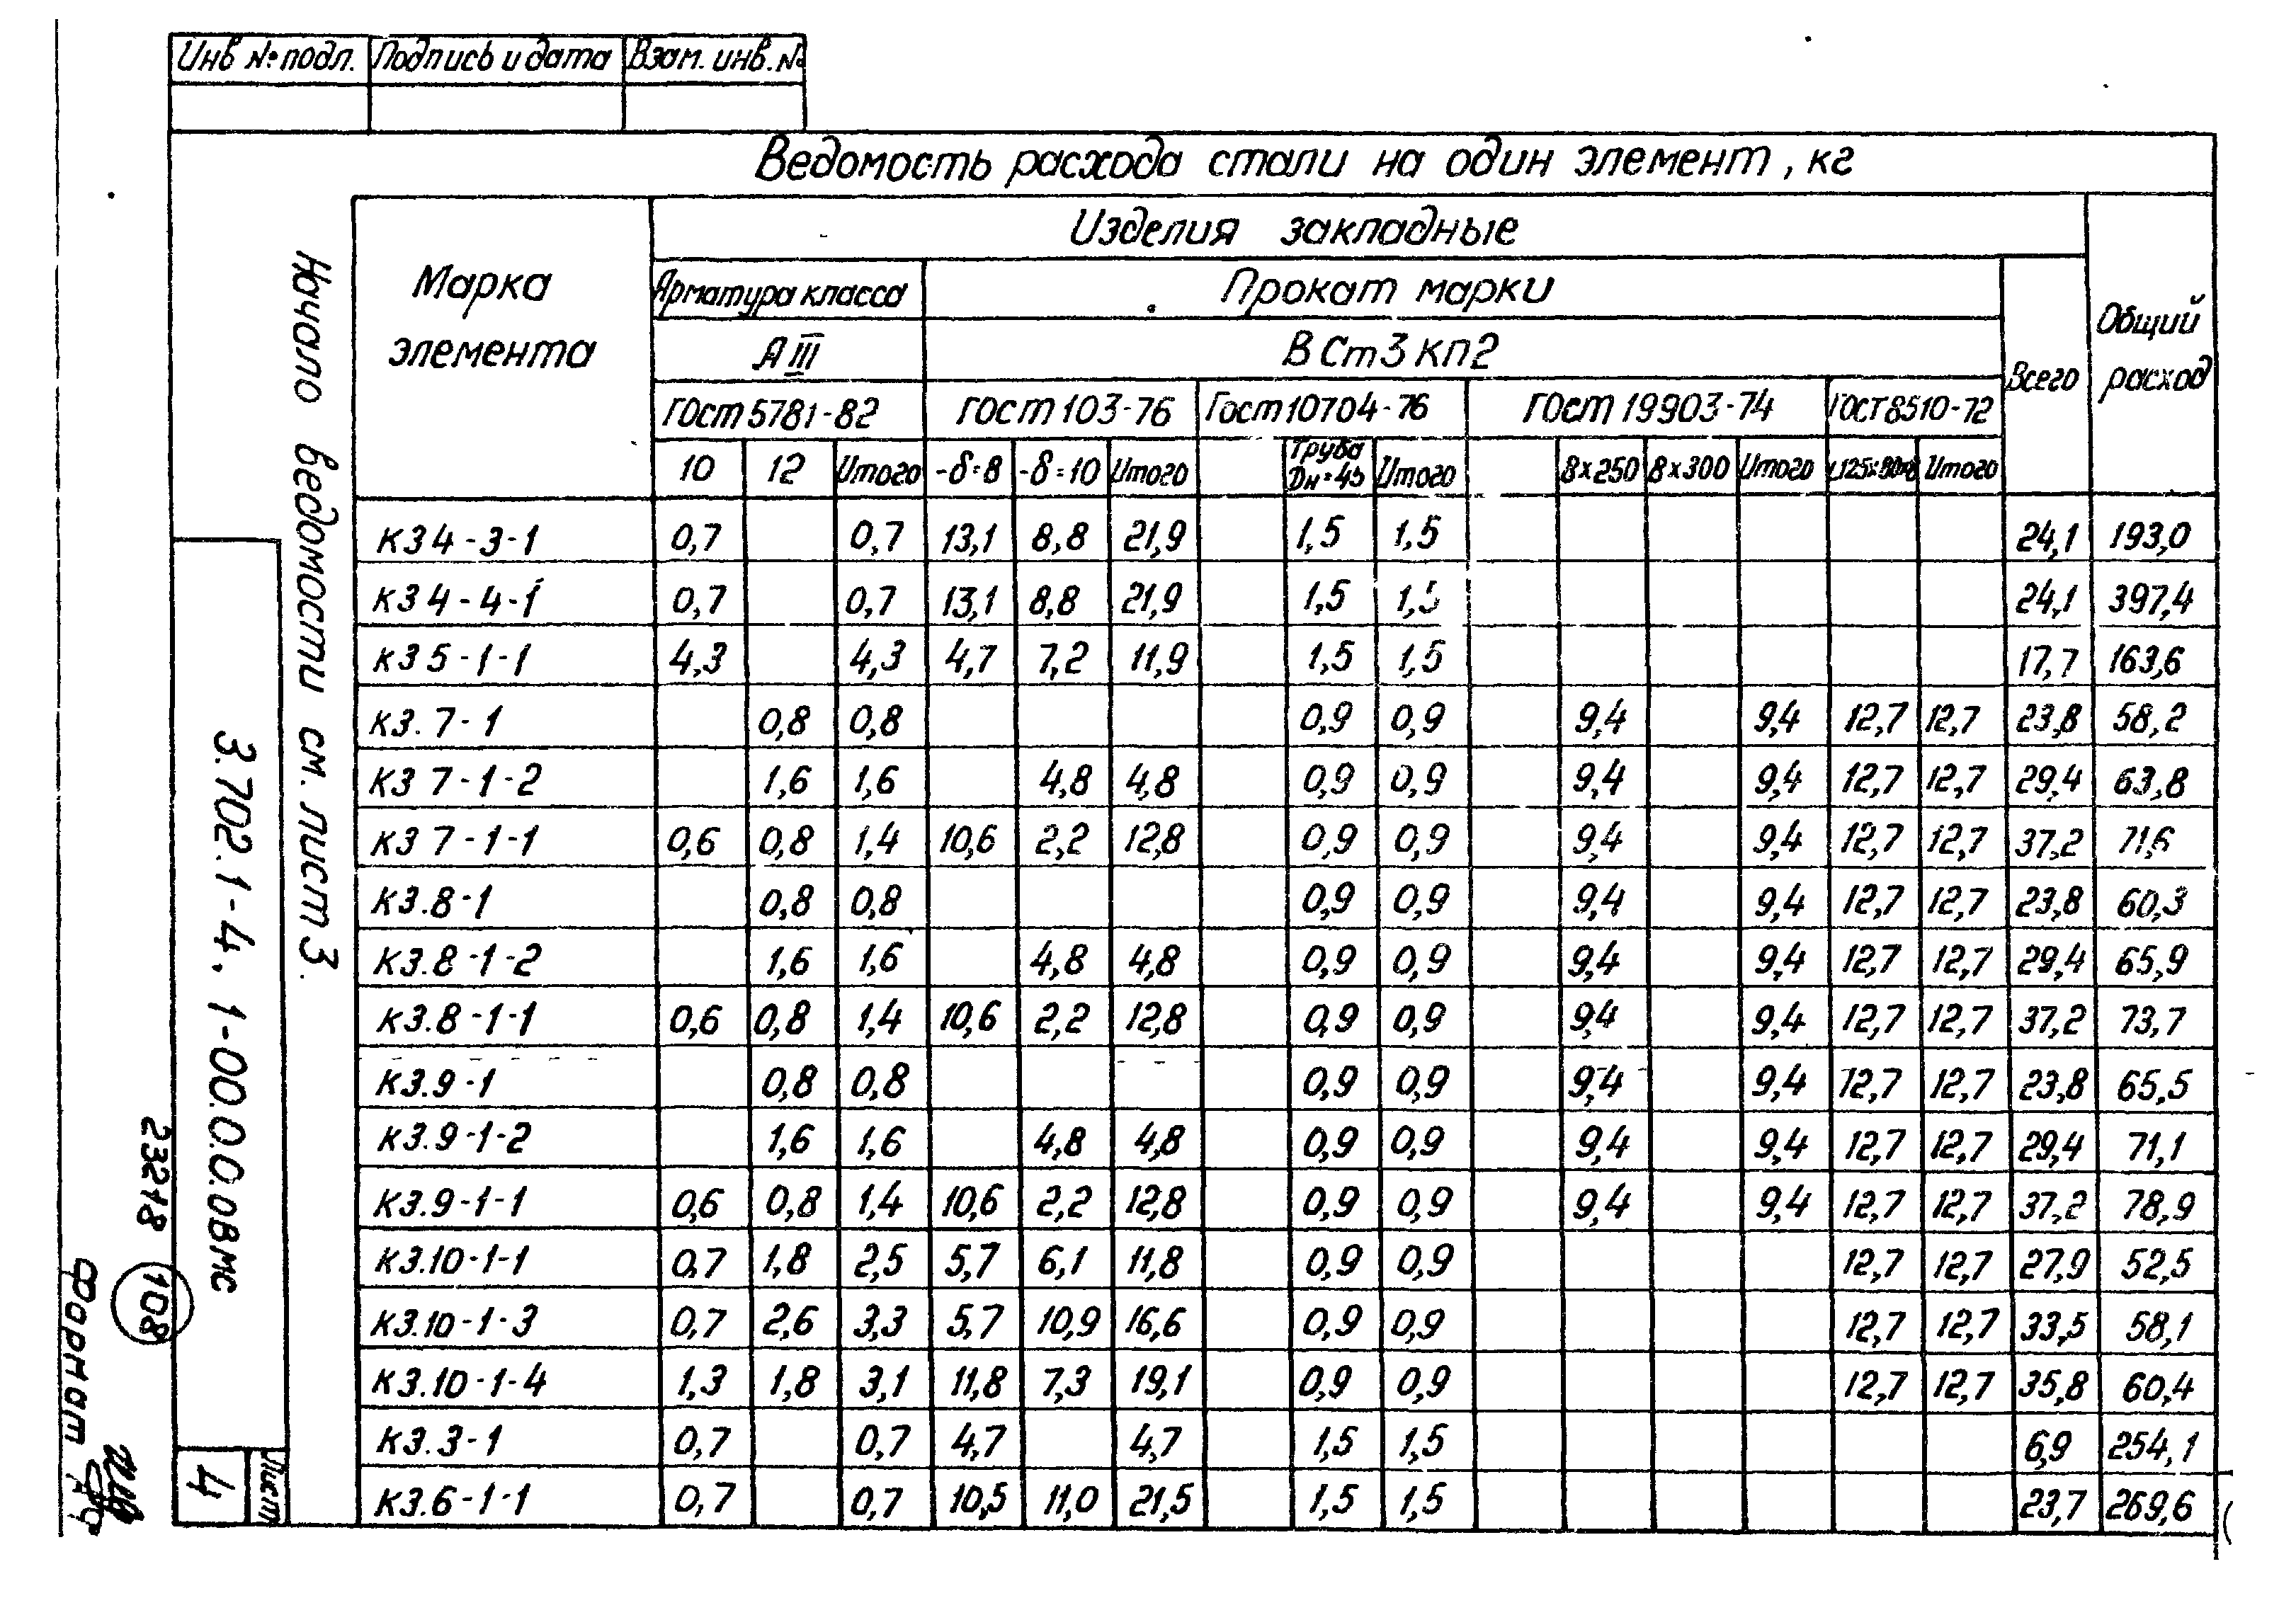 Инв № подл. Подпись и дата Взам. инв. №
Ведомость расхода стали на один элемент, кг
Марка элемента
Изделия закладные
Общий расход
Арматура класса
Прокат марки
Всего
А III
В Ст3 кп2
ГОСТ 5781-82 ГОСТ 103-76 ГОСТ 10704-76 ГОСТ 19903-74 ГОСТ 8510-72
10 12 Итого -δ=8 -δ=10 Итого Труба Dн=45 Итого 8×250 8×300 Итого L125×80×8 Итого
К3 4-3-1 0,7 0,7 13,1 8,8 21,9 1,5 1,5 24,1 193,0
К3 4-4-1 0,7 0,7 13,1 8,8 21,9 1,5 1,5 24,1 397,4
К3 5-1-1 4,3 4,3 4,7 7,2 11,9 1,5 1,5 17,7 163,6
К3.7-1 0,8 0,8 0,9 0,9 9,4 9,4 12,7 12,7 23,8 58,2
К3 7-1-2 1,6 1,6 4,8 4,8 0,9 0,9 9,4 9,4 12,7 12,7 29,4 63,8
К3 7-1-1 0,6 0,8 1,4 10,6 2,2 12,8 0,9 0,9 9,4 9,4 12,7 12,7 37,2 71,6
К3.8-1 0,8 0,8 0,9 0,9 9,4 9,4 12,7 12,7 23,8 60,3
К3.8-1-2 1,6 1,6 4,8 4,8 0,9 0,9 9,4 9,4 12,7 12,7 29,4 65,9
К3.8-1-1 0,6 0,8 1,4 10,6 2,2 12,8 0,9 0,9 9,4 9,4 12,7 12,7 37,2 73,7
К3.9-1 0,8 0,8 0,9 0,9 9,4 9,4 12,7 12,7 23,8 65,5
К3.9-1-2 1,6 1,6 4,8 4,8 0,9 0,9 9,4 9,4 12,7 12,7 29,4 71,1
К3.9-1-1 0,6 0,8 1,4 10,6 2,2 12,8 0,9 0,9 9,4 9,4 12,7 12,7 37,2 78,9
К3.10-1-1 0,7 1,8 2,5 5,7 6,1 11,8 0,9 0,9 12,7 12,7 27,9 52,5
К3.10-1-3 0,7 2,6 3,3 5,7 10,9 16,6 0,9 0,9 12,7 12,7 33,5 58,1
К3.10-1-4 1,3 1,8 3,1 11,8 7,3 19,1 0,9 0,9 12,7 12,7 35,8 60,4
К3.3-1 0,7 0,7 4,7 4,7 1,5 1,5 6,9 254,1
К3.6-1-1 0,7 0,7 10,5 11,0 21,5 1,5 1,5 23,7 269,6
Начало ведомости см. лист 3.
3.702.1-4.1-00.0.0.0ВМС
Лист
4
23218 108
Формат